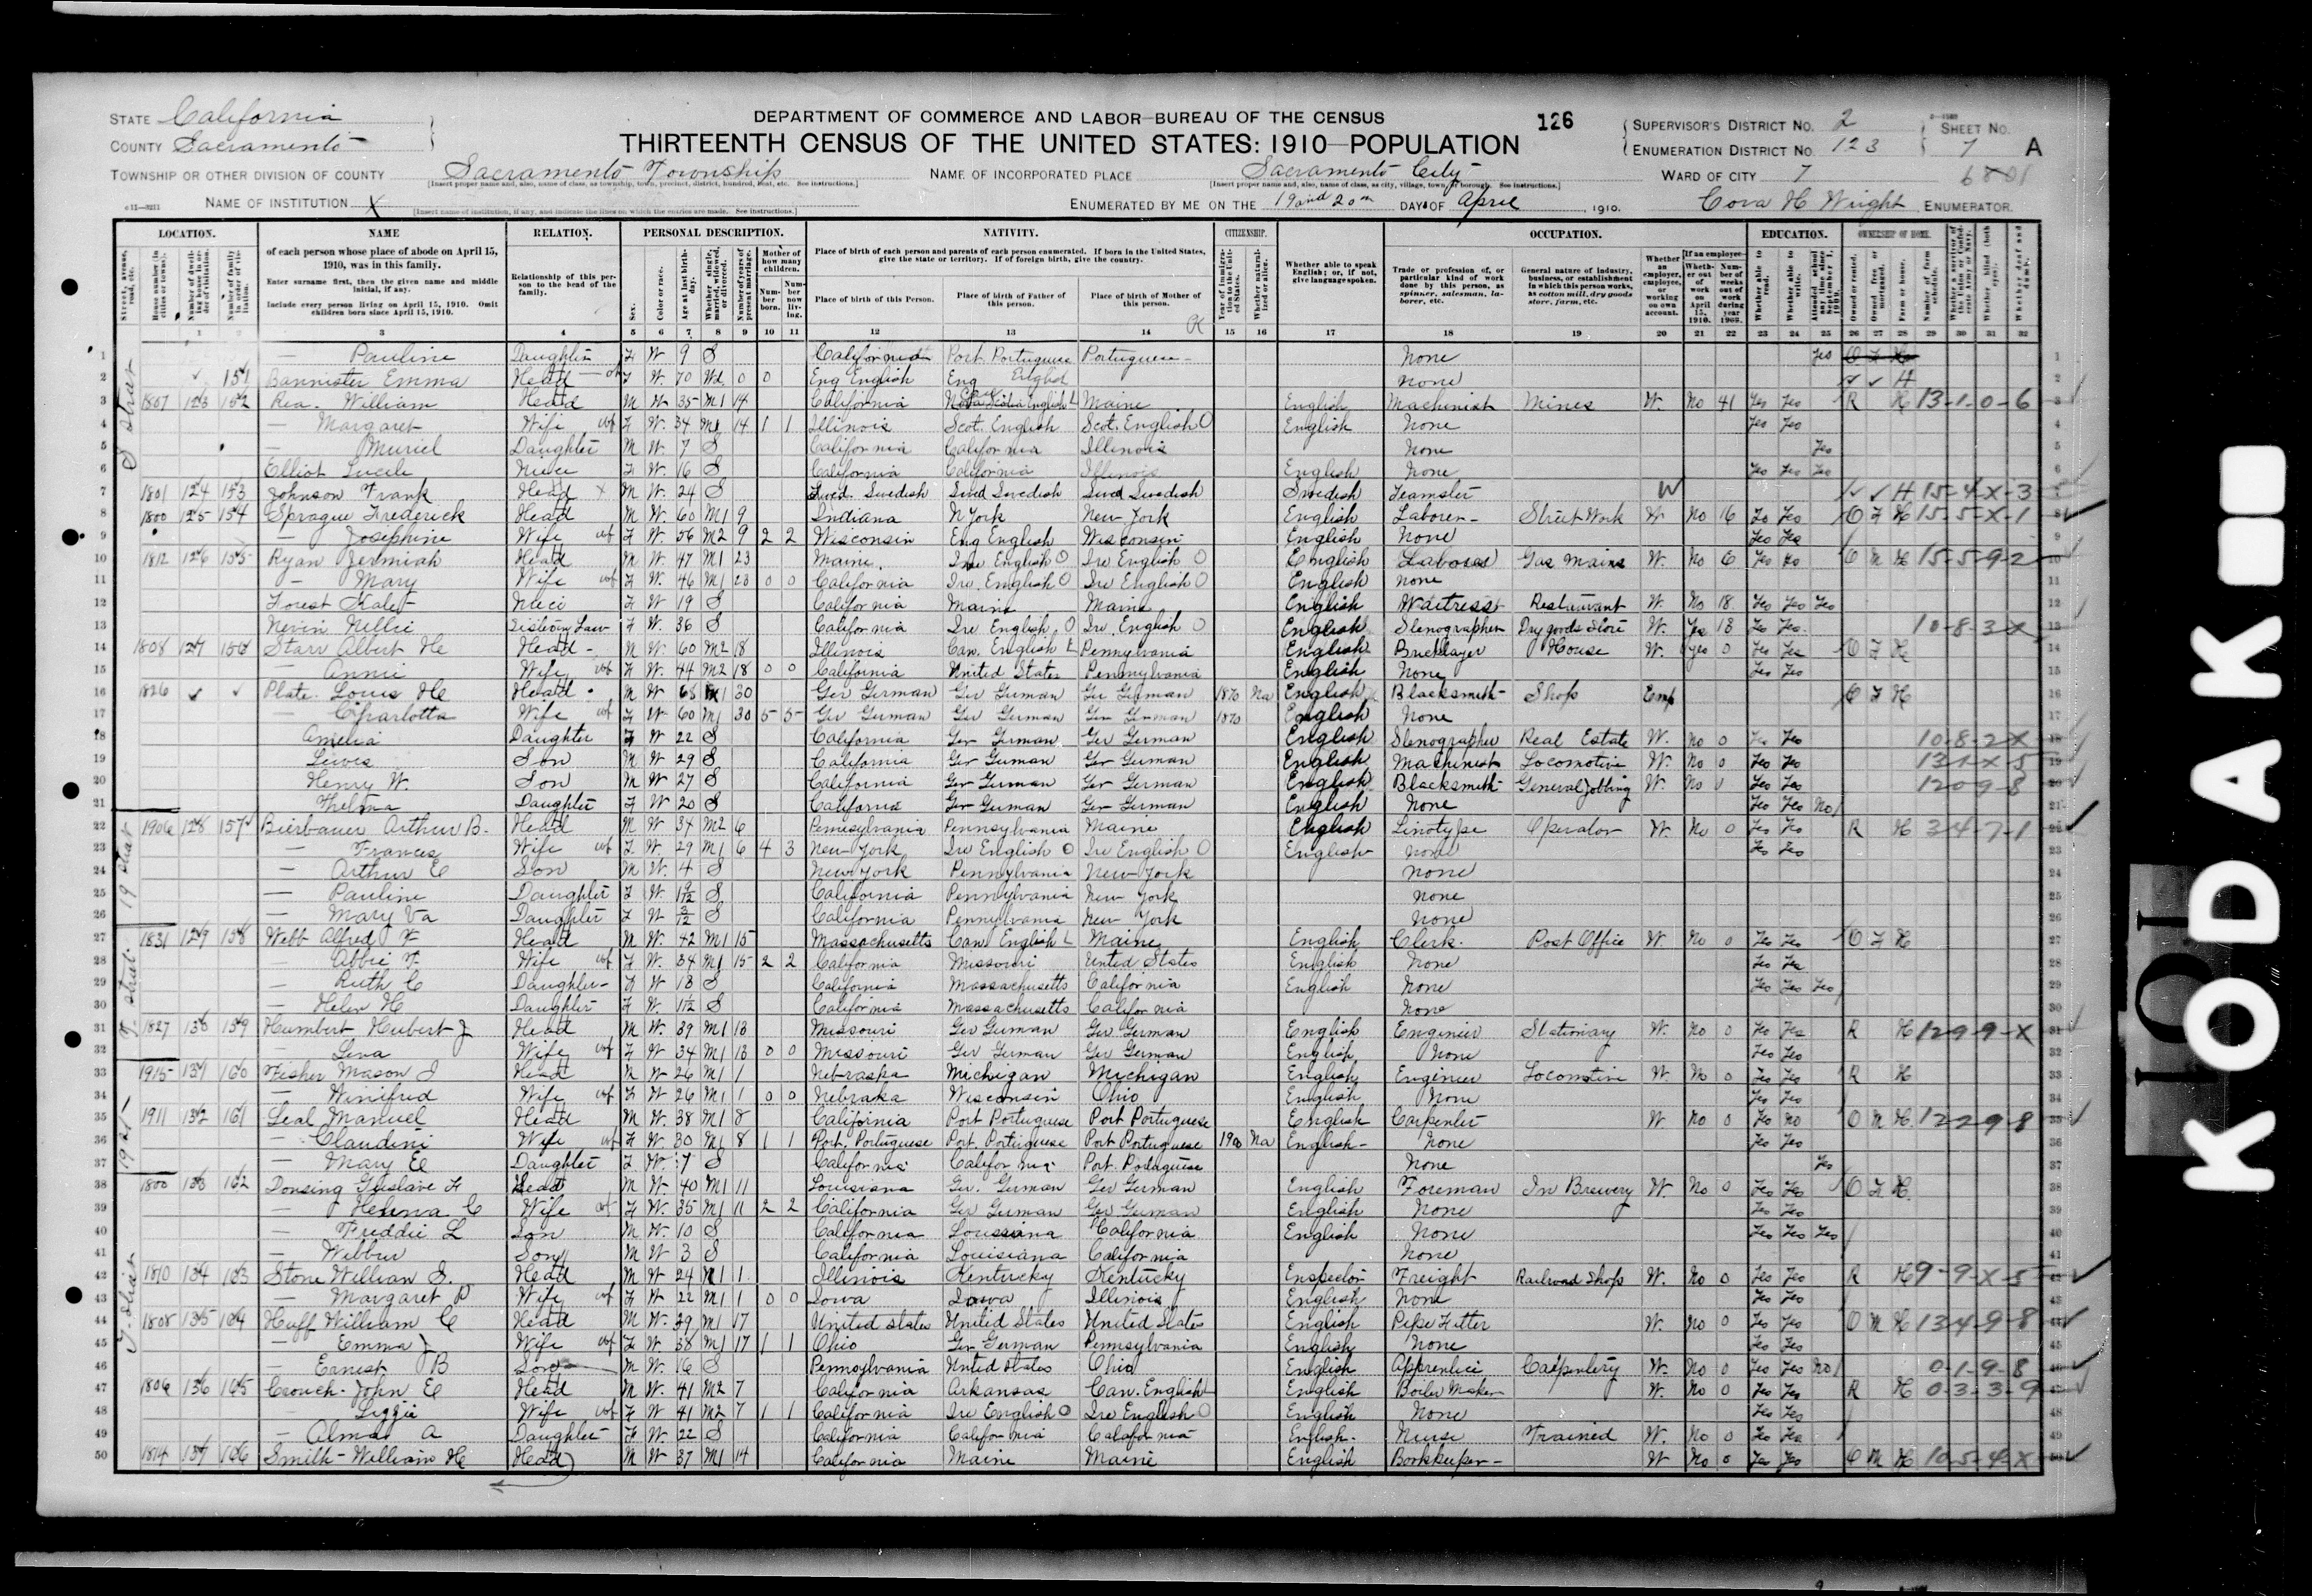 STATE California
COUNTY Sacramento
TOWNSHIP OR OTHER DIVISION OF COUNTY Sacramento Township
NAME OF INSTITUTION X
DEPARTMENT OF COMMERCE AND LABOR—BUREAU OF THE CENSUS
THIRTEENTH CENSUS OF THE UNITED STATES: 1910—POPULATION
126
NAME OF INCORPORATED PLACE Sacramento City
ENUMERATED BY ME ON THE 19 and 20th DAY OF April, 1910.
SUPERVISOR'S DISTRICT NO. 2
ENUMERATION DISTRICT NO. 123
SHEET NO. 7 A
WARD OF CITY 7
Cova H Wright, ENUMERATOR.
LOCATION. NAME RELATION. PERSONAL DESCRIPTION. NATIVITY. CITIZENSHIP. OCCUPATION. EDUCATION. OWNERSHIP OF HOME.
of each person whose place of abode on April 15, 1910, was in this family.
Enter surname first, then the given name and middle initial, if any.
Include every person living on April 15, 1910. Omit children born since April 15, 1910.
Relationship of this person to the head of the family.
Place of birth of each person and parents of each person enumerated. If born in the United States, give the state or territory. If of foreign birth, give the country.
Place of birth of this Person. Place of birth of Father of this person. Place of birth of Mother of this person.
Whether able to speak English; or, if not, give language spoken.
Trade or profession of, or particular kind of work done by this person, as spinner, salesman, laborer, etc.
General nature of industry, business, or establishment in which this person works, as cotton mill, dry goods store, farm, etc.
1 — Pauline Daughter F W 9 S California Port. Portuguese Portuguese None Yes
2 151 Bannister Emma Head F W 70 Wd 0 0 Eng English Eng English none
3 1807 123 152 Rea William Head M W 35 M1 14 California Maine English Machinist Mines W No 41 Yes Yes R H 13-1-0-6
4 — Margaret Wife F W 34 M1 14 1 1 Illinois Scot. English Scot. English English None Yes Yes
5 — Muriel Daughter M W 7 S California California Illinois None Yes
6 Elliot Lucile Niece F W 16 S California California Illinois English None Yes Yes Yes
7 1801 124 153 Johnson Frank Head M W 24 S Swed. Swedish Swed Swedish Swed Swedish Swedish Teamster W H 15-4-X-3
8 1800 125 154 Sprague Frederick Head M W 60 M1 9 Indiana N York New York English Laborer Street Work W No 16 Yes Yes O F H 15-5-X-1
9 — Josephine Wife F W 56 M2 9 2 2 Wisconsin Eng English Wisconsin English None Yes Yes
10 1812 126 155 Ryan Jeremiah Head M W 47 M1 23 Maine Ire English Ire English English Laborer Gas Mains W No 6 Yes No O M H 15-5-9-2
11 — Mary Wife F W 46 M1 23 0 0 California Ire. English Ire English English none
12 Forest Kate Niece F W 19 S California Maine Maine English Waitress Restaurant W No 18 Yes Yes Yes
13 Nevin Nellie Sister in Law F W 36 S California Ire English Ire English English Stenographer Dry goods Store W Yes 18 Yes Yes 10-8-3-X
14 1808 127 156 Starr Albert H Head M W 60 M2 18 Illinois Can. English Pennsylvania English Bricklayer House W Yes 0 Yes Yes O F H
15 — Annie Wife F W 44 M2 18 0 0 California United States Pennsylvania English None Yes Yes
16 1826 Plate Louis H Head M W 68 M1 30 Ger German Ger German Ger German 1870 Na English Blacksmith Shop Emp O F H
17 — Charlotta Wife F W 60 M1 30 5 5 Ger German Ger German Ger German 1870 English None
18 Amelia Daughter F W 22 S California Ger German Ger German English Stenographer Real Estate W No 0 Yes Yes 10-8-2-X
19 Lewis Son M W 29 S California Ger German Ger German English Machinist Locomotive W No 0 Yes Yes 13-1-X-5
20 Henry W. Son M W 27 S California Ger German Ger German English Blacksmith General Jobbing W No Yes Yes 12-0-9-8
21 Thelma Daughter F W 20 S California Ger German Ger German English None Yes Yes No
22 1906 128 157 Bierbauer Arthur B. Head M W 34 M2 6 Pennsylvania Pennsylvania Maine English Linotype Operator W No 0 Yes Yes R H 3-4-7-1
23 — Frances Wife F W 29 M1 6 4 3 New York Ire English Ire English English none Yes Yes
24 — Arthur C Son M W 4 S New York Pennsylvania New York none
25 — Pauline Daughter F W S California Pennsylvania New York none
26 — Mary Va Daughter F W S California Pennsylvania New York None
27 1831 129 158 Webb Alfred F Head M W 42 M1 15 Massachusetts Can English Maine English Clerk Post Office W No 0 Yes Yes O F H
28 — Abbie F. Wife F W 34 M1 15 2 2 California Missouri United States English None Yes Yes
29 — Ruth C Daughter F W 13 S California Massachusetts California English None Yes Yes Yes
30 — Helen H Daughter F W S California Massachusetts California None
31 1827 130 159 Humbert Hubert J Head M W 39 M1 13 Missouri Ger German Ger German English Engineer Stationary W No 0 Yes Yes R H 12-9-9-X
32 — Lena Wife F W 34 M1 13 0 0 Missouri Ger German Ger German English None Yes Yes
33 1915 131 160 Fisher Mason J Head M W 26 M1 1 Nebraska Michigan Michigan English Engineer Locomotive W No 0 Yes Yes R H
34 — Winifred Wife F W 26 M1 1 0 0 Nebraska Wisconsin Ohio English None Yes Yes
35 1911 132 161 Leal Manuel Head M W 38 M1 8 California Port Portuguese Port Portuguese English Carpenter W No 0 Yes No O M H 12-2-9-8
36 — Claudini Wife F W 30 M1 8 1 1 Port. Portuguese Port. Portuguese Port Portuguese 1900 Na English None Yes Yes
37 — Mary E Daughter F W 7 S California California Port. Portuguese None Yes
38 1800 133 162 Donsing Gustave F Head M W 40 M1 11 Louisiana Ger. German Ger German English Foreman In Brewery W No 0 Yes Yes O F H
39 — Helena C Wife F W 35 M1 11 2 2 California Ger German Ger German English None Yes Yes
40 — Freddie L Son M W 10 S California Louisiana California English None Yes Yes Yes
41 — Wilbur Son M W 3 S California Louisiana California None
42 1810 134 163 Stone William S. Head M W 24 M1 1 Illinois Kentucky Kentucky Enspector Freight Railroad Shop W No 0 Yes Yes R H 9-9-X-5
43 — Margaret P Wife F W 22 M1 1 0 0 Iowa Iowa Illinois English None Yes Yes
44 1808 135 164 Huff William C Head M W 39 M1 17 United States United States United States English Pipe Fitter W No 0 Yes Yes O M H 13-4-9-8
45 — Emma J Wife F W 38 M1 17 1 1 Ohio Ger German Pennsylvania English None Yes Yes
46 — Ernest B Son M W 16 S Pennsylvania United States Ohio English Apprentice Carpentery W No 0 Yes Yes No 0-1-9-8
47 1806 136 165 Crouch John E Head M W 41 M2 7 California Arkansas Can. English English Boiler Maker W No 0 Yes Yes R H 0-3-3-9
48 — Lizzie Wife F W 41 M2 7 1 1 California Ire English Ire English English None Yes Yes
49 — Alma A Daughter F W 22 S California California California English Nurse Trained W No 0 Yes Yes
50 1814 137 166 Smith William H Head M W 37 M1 14 California Maine Maine English Bookkeeper W No 0 Yes Yes O M H 10-5-4-X
KODAK